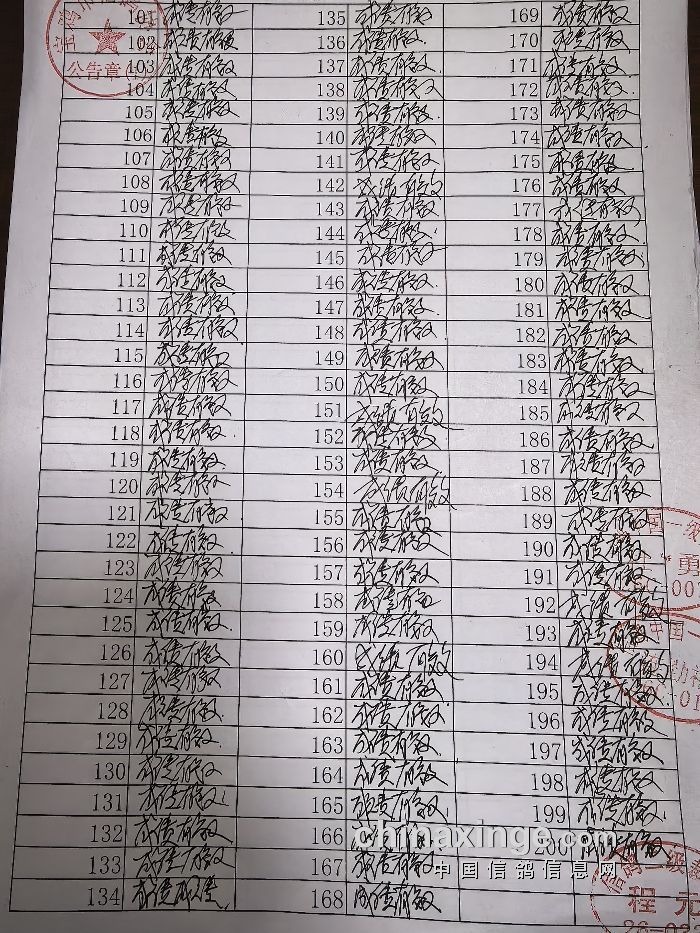 101 成绩有效 135 成绩有效 169 成绩有效
102 成绩有效 136 成绩有效 170 成绩有效
103 成绩有效 137 成绩有效 171 成绩有效
104 成绩有效 138 成绩有效 172 成绩有效
105 成绩有效 139 成绩有效 173 成绩有效
106 成绩有效 140 成绩有效 174 成绩有效
107 成绩有效 141 成绩有效 175 成绩有效
108 成绩有效 142 成绩有效 176 成绩有效
109 成绩有效 143 成绩有效 177 成绩有效
110 成绩有效 144 成绩有效 178 成绩有效
111 成绩有效 145 成绩有效 179 成绩有效
112 成绩有效 146 成绩有效 180 成绩有效
113 成绩有效 147 成绩有效 181 成绩有效
114 成绩有效 148 成绩有效 182 成绩有效
115 成绩有效 149 成绩有效 183 成绩有效
116 成绩有效 150 成绩有效 184 成绩有效
117 成绩有效 151 成绩有效 185 成绩有效
118 成绩有效 152 成绩有效 186 成绩有效
119 成绩有效 153 成绩有效 187 成绩有效
120 成绩有效 154 成绩有效 188 成绩有效
121 成绩有效 155 成绩有效 189 成绩有效
122 成绩有效 156 成绩有效 190 成绩有效
123 成绩有效 157 成绩有效 191 成绩有效
124 成绩有效 158 成绩有效 192 成绩有效
125 成绩有效 159 成绩有效 193 成绩有效
126 成绩有效 160 成绩有效 194 成绩有效
127 成绩有效 161 成绩有效 195 成绩有效
128 成绩有效 162 成绩有效 196 成绩有效
129 成绩有效 163 成绩有效 197 成绩有效
130 成绩有效 164 成绩有效 198 成绩有效
131 成绩有效 165 成绩有效 199 成绩有效
132 成绩有效 166 成绩有效 200 成绩有效
133 成绩有效 167 成绩有效
134 成绩 168 成绩有效
公告章
勇
007
中国
程元
chinaxinge.com
中国信鸽信息网